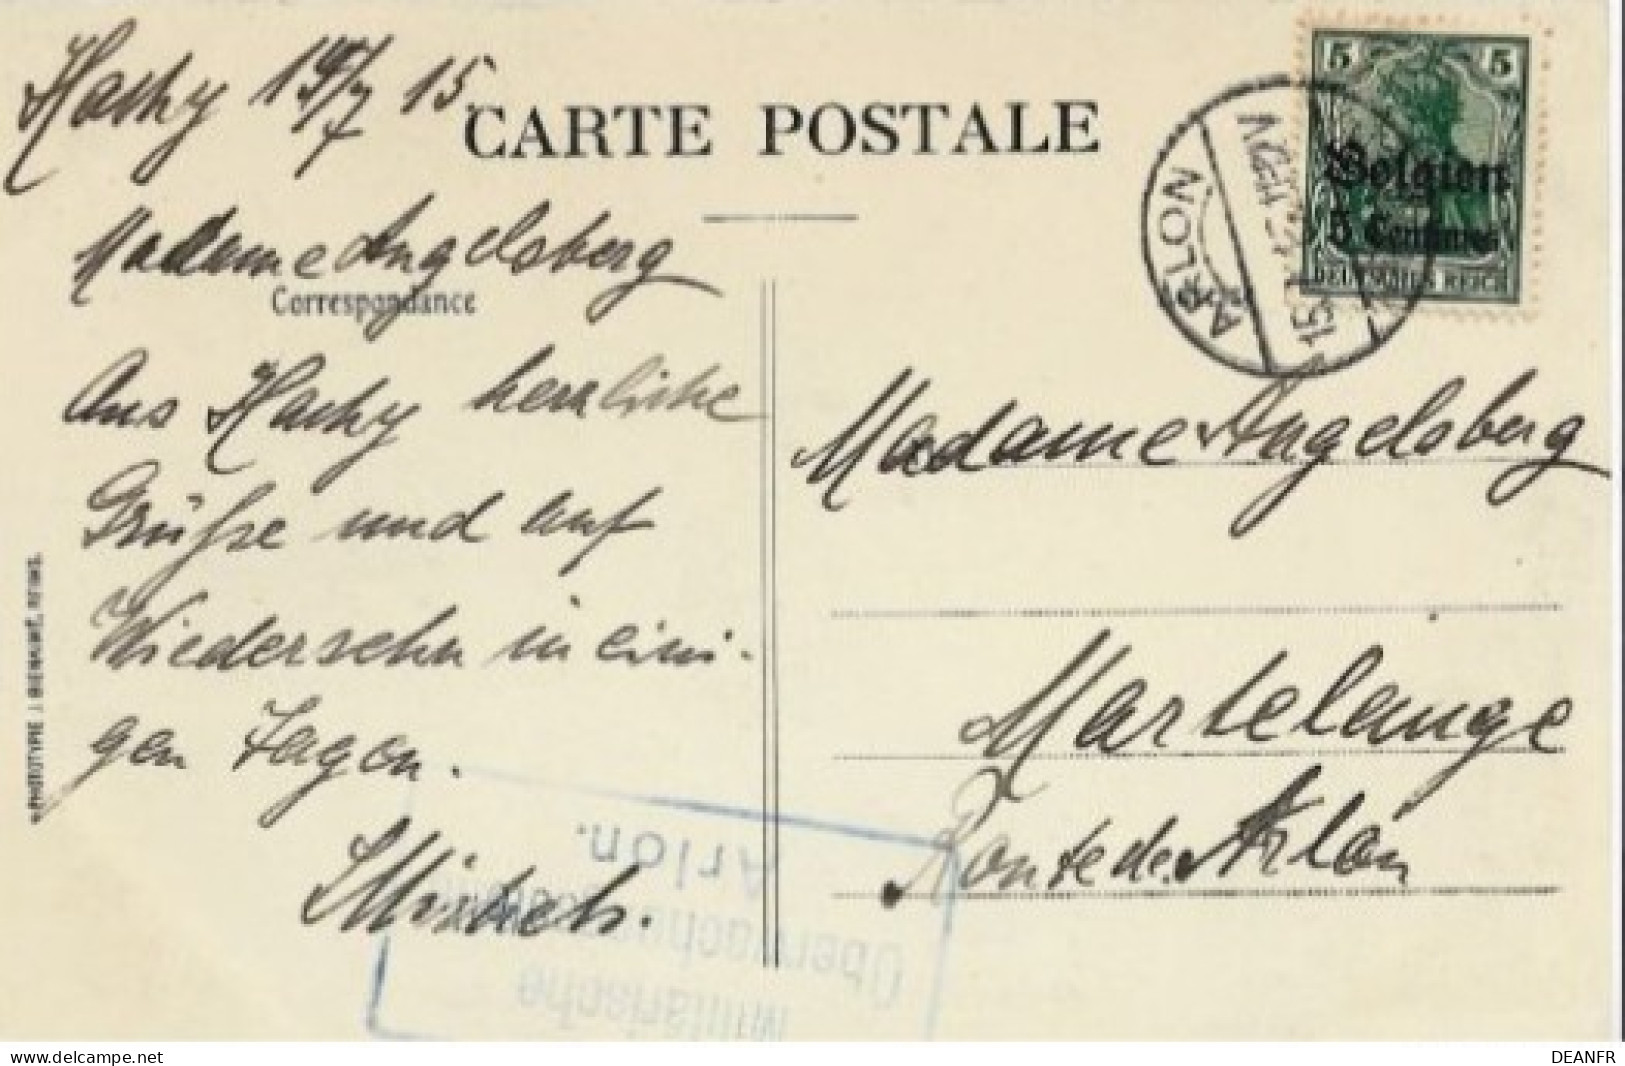 Hachy 19/7 15
CARTE POSTALE
5 5
Belgien
5 Centimes
DEUTSCHES REICH
ARLON
Madame Angelsberg
Correspondance
Aus Hachy herzliche
Grüße und auf
Wiedersehn in eini-
gen Tagen.
Madame Angelsberg
Martelange
Route de Arlon
Militärische
Überwachungsstelle
Arlon.
www.delcampe.net
DEANFR